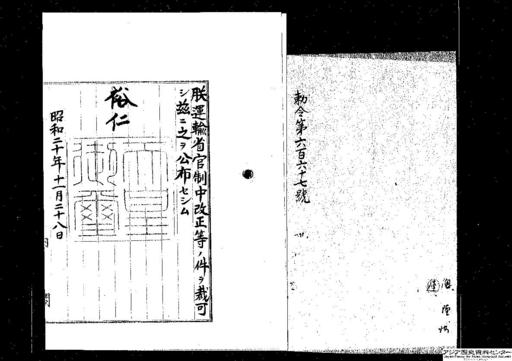 勅令第六百六十七號
朕運輸省官制中改正等ノ件ヲ裁可
シ茲ニ之ヲ公布セシム
裕仁
天皇御璽
昭和二十年十一月二十八日
アジア歴史資料センター